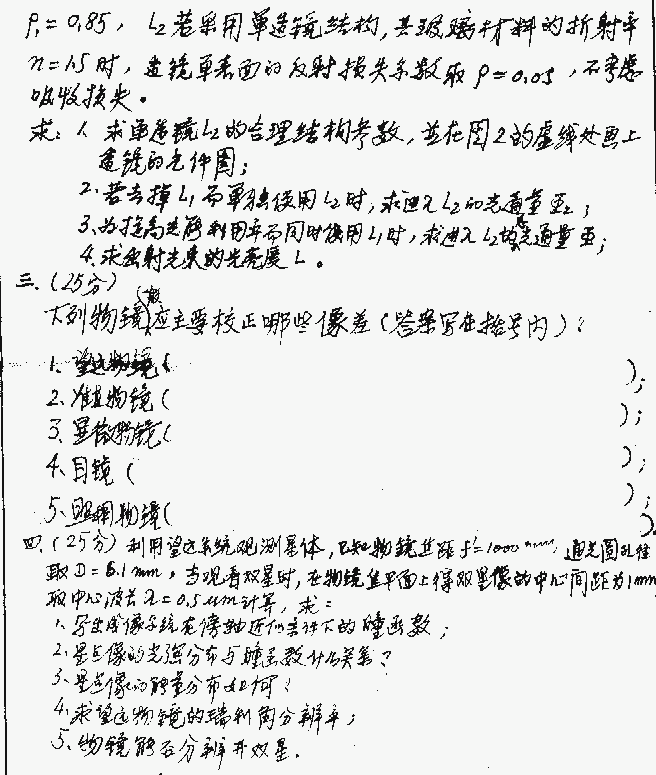 ρ₁=0.85，L₂若采用单透镜结构，其玻璃材料的折射率
n=1.5时，透镜单表面的反射损失系数取ρ=0.05，不考虑
吸收损失。
求：1. 求单透镜L₂的合理结构参数，并在图2的虚线处画上
透镜的光件图；
2. 若去掉L₁而单独使用L₂时，求进入L₂的光通量Φ₂；
3. 为提高光能利用率而同时使用L₁时，求进入L₂的光通量Φ；
4. 求出射光束的光亮度L。
三、(25分)
下列物镜应主要校正哪些像差（答案写在括号内）：
1、望远物镜( );
2、准直物镜( );
3、显微物镜( );
4、目镜( );
5、照相物镜( ).
四、(25分) 利用望远系统观测星体，已知物镜焦距f'=1000mm，通光圆孔径
取D=6.1mm，当观看双星时，在物镜焦平面上得双星像的中心间距为1mm
取中心波长λ=0.5μm计算，求：
1、写出成像系统在傍轴近似条件下的瞳函数；
2、星点像的光强分布与瞳函数什么关系？
3、星点像的能量分布如何？
4、求望远物镜的瑞利角分辨率；
5、物镜能否分辨开双星.